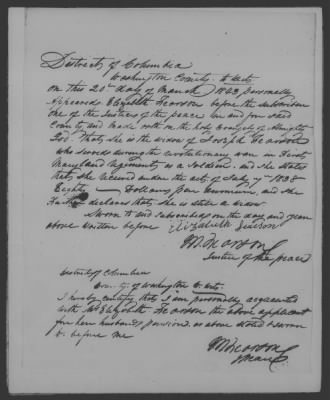 District of Columbia
Washington County to wit
on this 20th day of March 1843 personally
appeared Elizabeth Searson before the subscriber
one of the Justices of the peace in and for said
County and made oath on the holy Evangely of Almighty
God that she is the widow of Joseph Searson
who served during the revolutionary war in first
Maryland regiment as a soldier and she stated
that she received under the act of July 7th 1838
Eighty Dollars per annum, and she
further declares that she is still a widow
Sworn to and subscribed on the day and year
above written before Elizabeth Searson
Justice of the peace
District of Columbia
County of Washington to wit
I hereby certify that I am personally acquainted
with Mrs Elizabeth Searson the above applicant
for her husbands pension as above stated sworn
to before me